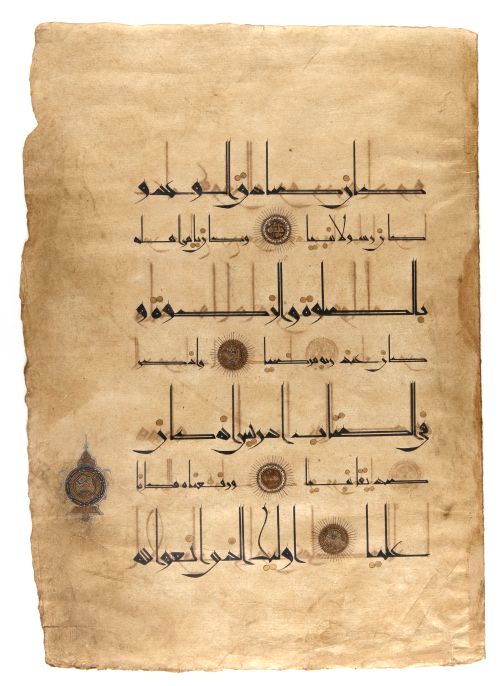 كان صادق الوعد و
كان رسولا نبيا وكان يامر اهله
بالصلوة والزكوة و
كان عند ربه مرضيا واذكر
في الكتاب ادريس انه كان
صديقا نبيا ورفعناه مكانا
عليا اولئك الذين انعم الله